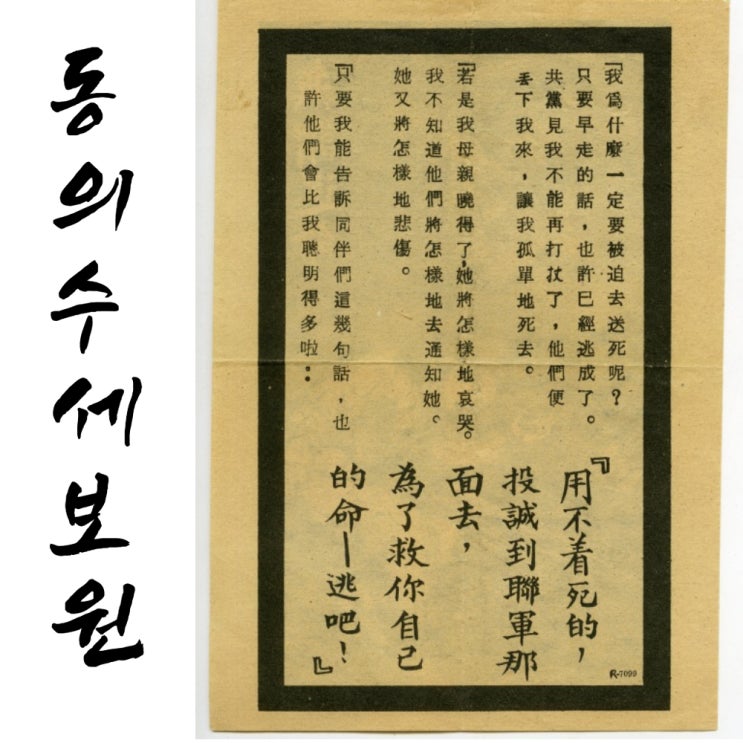 동의수세보원
「我為什麼一定要被迫去送死呢？
只要早走的話，也許已經逃成了。
共黨見我不能再打仗了，他們便
丢下我來，讓我孤單地死去。
「若是我母親曉得了，她將怎樣地哀哭。
我不知道他們將怎樣地去通知她。
她又將怎樣地悲傷。
「只要我能告訴同伴們這幾句話，也
許他們會比我聰明得多啦：
『用不着死的，
投誠到聯軍那
面去，
為了救你自己
的命—逃吧！』
R-7099